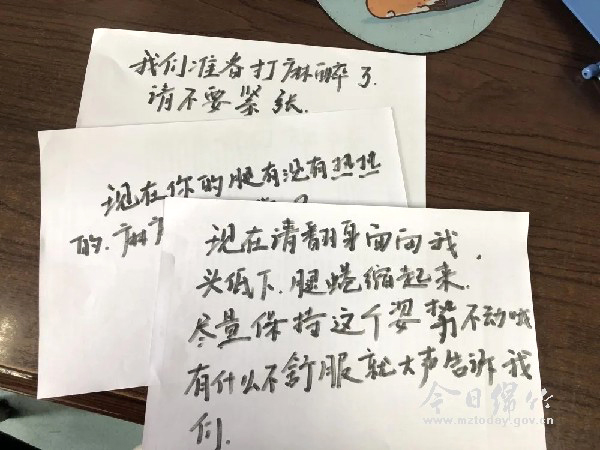 我们准备打麻醉了.
请不要紧张.
现在你的腿有没有热热
的.麻
现在请翻身面向我.
头低下.腿蜷缩起来.
尽量保持这个姿势不动哦
有什么不舒服就大声告诉我
们.
今日绵竹
www.mztoday.gov.cn